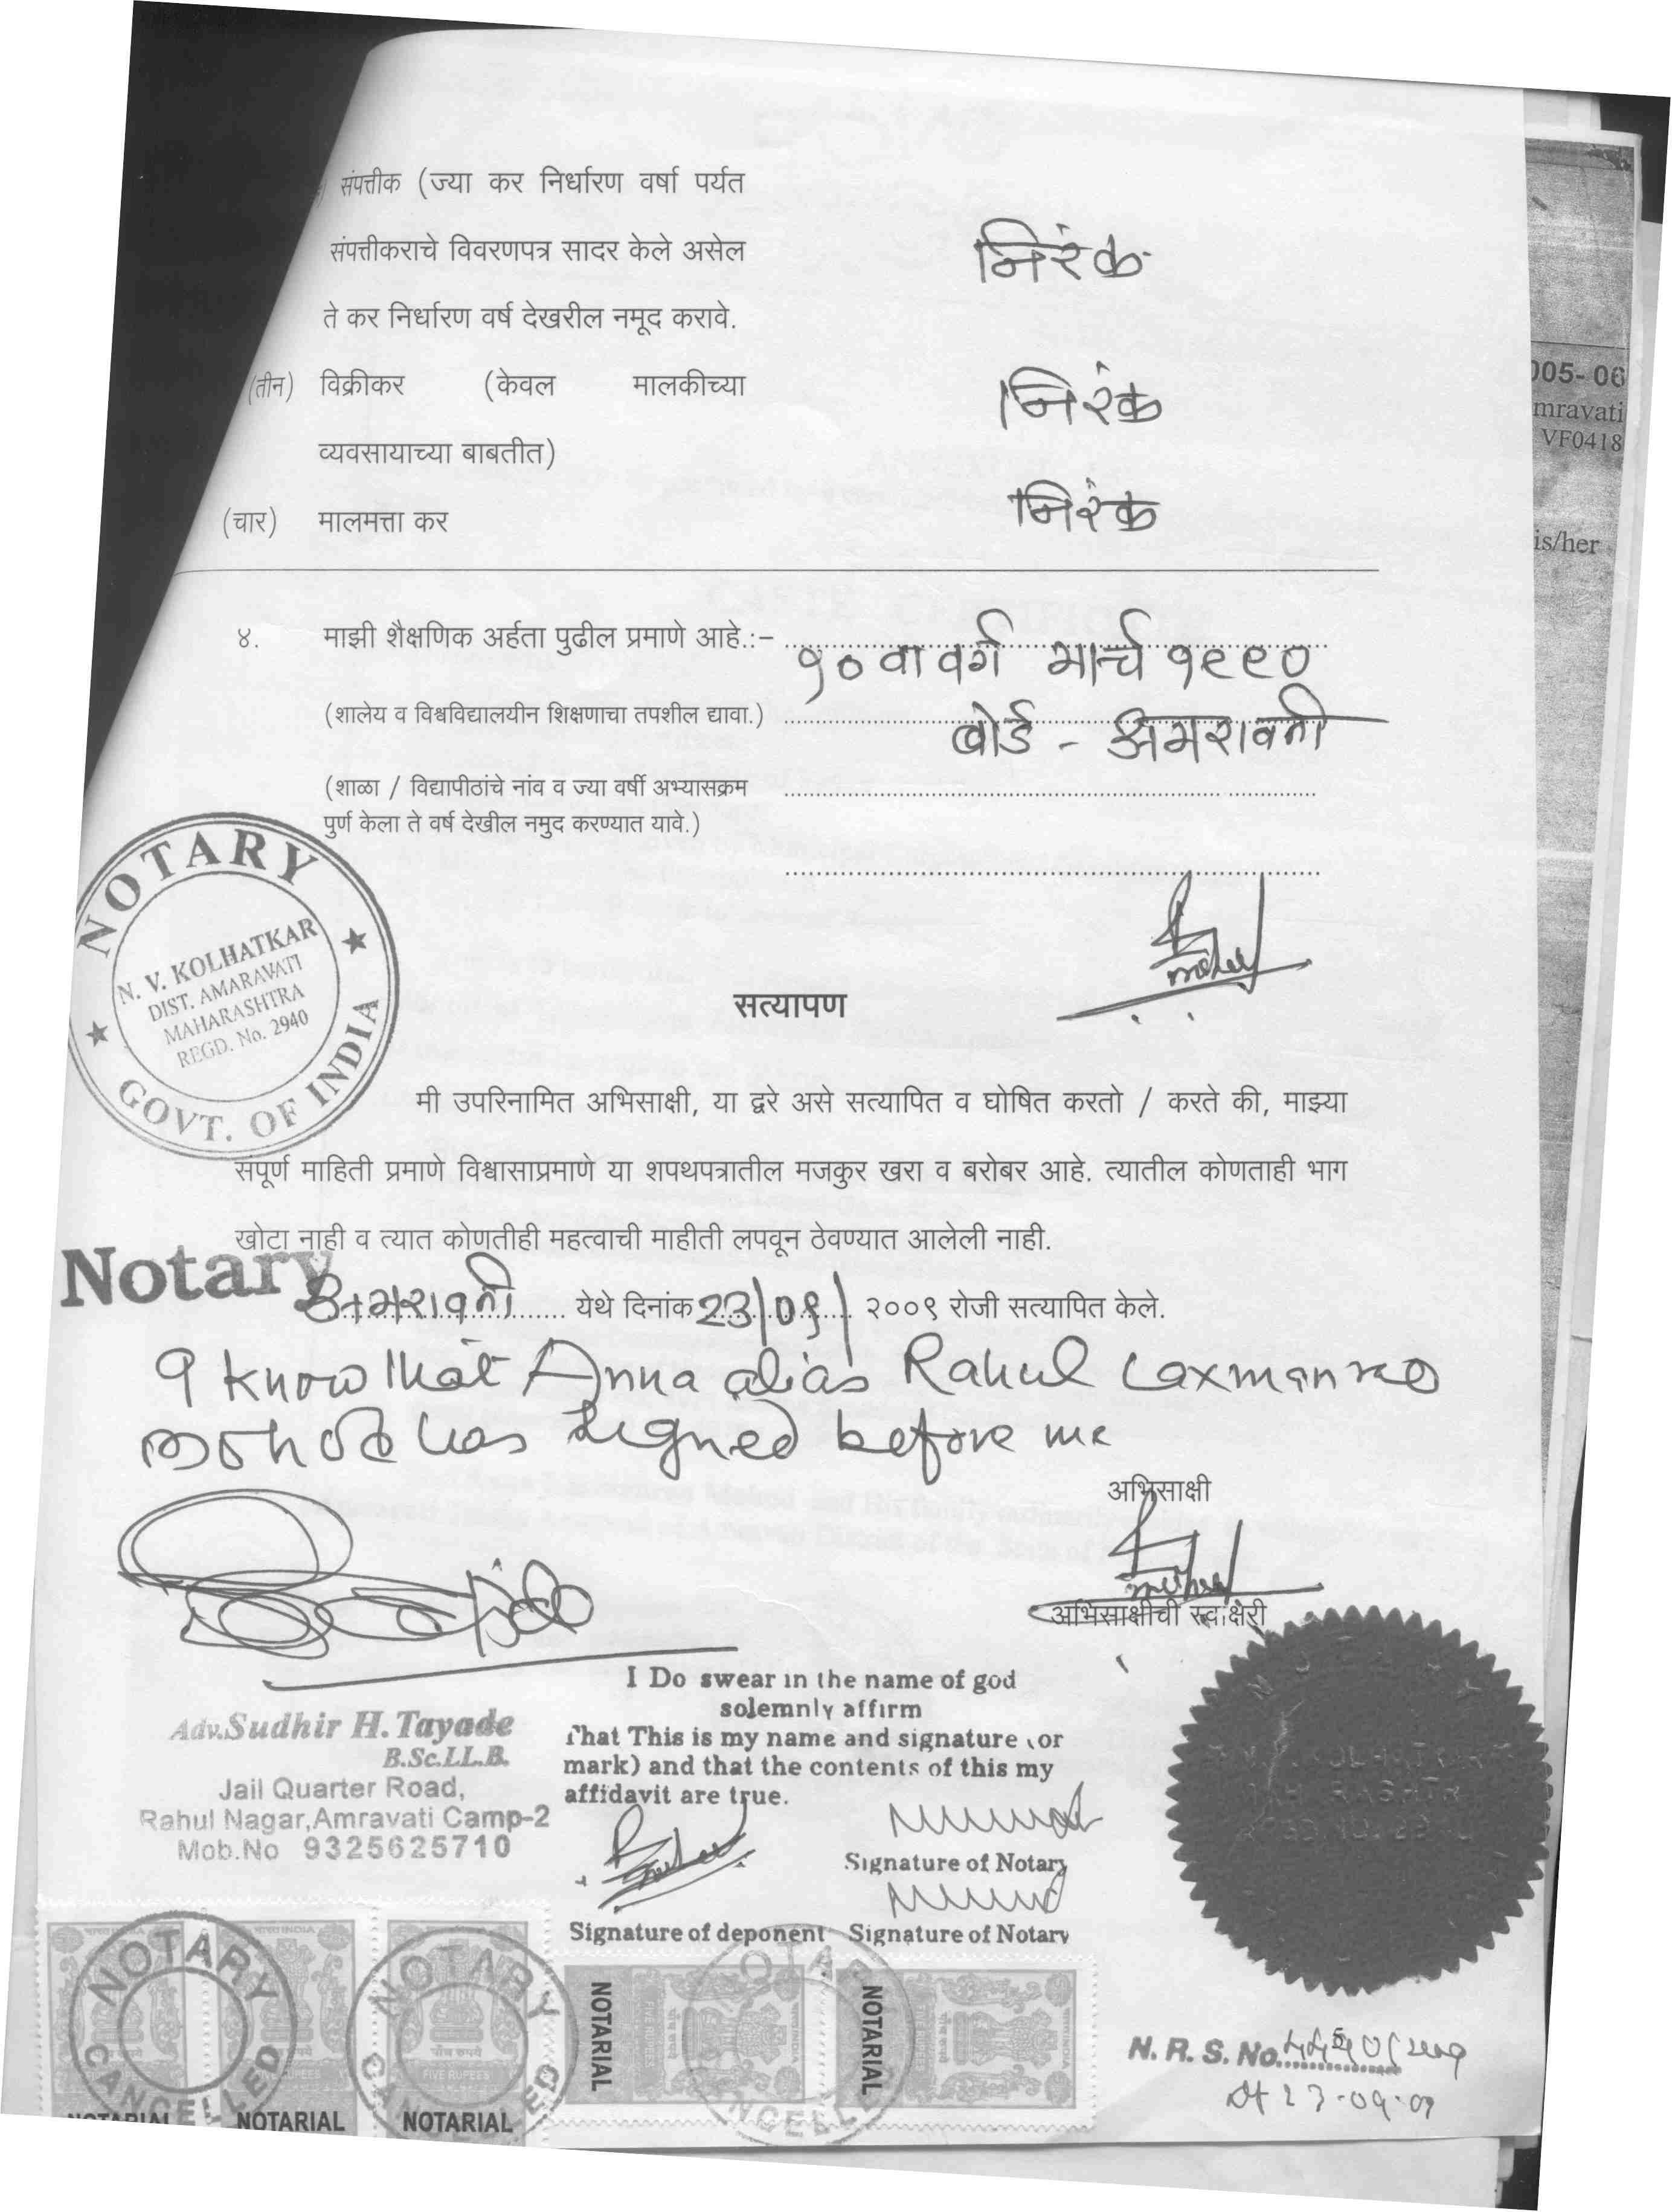 संपत्तीक (ज्या कर निर्धारण वर्षा पर्यत
संपत्तीकराचे विवरणपत्र सादर केले असेल
निरंक
ते कर निर्धारण वर्ष देखरील नमूद करावे.
(तीन) विक्रीकर (केवल मालकीच्या
निरंक
व्यवसायाच्या बाबतीत)
(चार) मालमत्ता कर
निरंक
४. माझी शैक्षणिक अर्हता पुढील प्रमाणे आहे.:-
१० वा वर्ग मार्च १९९०
(शालेय व विश्वविद्यालयीन शिक्षणाचा तपशील द्यावा.)
बोर्ड - अमरावती
(शाळा / विद्यापीठांचे नांव व ज्या वर्षी अभ्यासक्रम
पुर्ण केला ते वर्ष देखील नमुद करण्यात यावे.)
NOTARY
N. V. KOLHATKAR
DIST. AMARAVATI
MAHARASHTRA
REGD. No. 2940
GOVT. OF INDIA
सत्यापण
मी उपरिनामित अभिसाक्षी, या द्वरे असे सत्यापित व घोषित करतो / करते की, माझ्या
संपूर्ण माहिती प्रमाणे विश्वासाप्रमाणे या शपथपत्रातील मजकुर खरा व बरोबर आहे. त्यातील कोणताही भाग
खोटा नाही व त्यात कोणतीही महत्वाची माहीती लपवून ठेवण्यात आलेली नाही.
Notary
अमरावती येथे दिनांक 23/09/ २००९ रोजी सत्यापित केले.
I know that Anna alias Rahul Laxmanrao
Mohod has signed before me
अभिसाक्षी
अभिसाक्षीची स्वाक्षरी
I Do swear in the name of god
solemnly affirm
That This is my name and signature (or
mark) and that the contents of this my
affidavit are true.
Adv. Sudhir H. Tayade
B.Sc.LL.B.
Jail Quarter Road,
Rahul Nagar, Amravati Camp-2
Mob.No 9325625710
Signature of Notary
Signature of deponent Signature of Notary
NOTARY
CANCELLED
NOTARY
NOTARIAL
NOTARIAL
NOTARIAL
NOTARIAL
NOTARIAL
FIVE RUPEES
पाँच रुपये
N. R. S. No.
Dt 23-09-09
005-06
mravati
VF0418
is/her